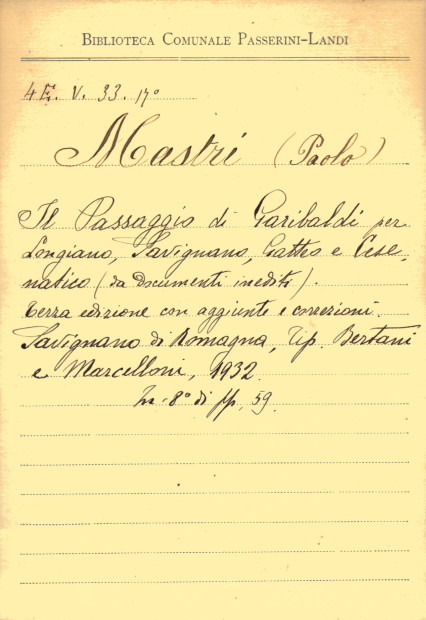 BIBLIOTECA COMUNALE PASSERINI-LANDI
4 E. V. 33. 17º
Mastri (Paolo)
Il Passaggio di Garibaldi per
Longiano, Savignano, Gatteo e Cese,
natico (da documenti inediti).
terza edizione con aggiunte e correzioni.
Savignano di Romagna, Tip. Bertani
e Marcelloni, 1932.
In-8º di pp. 59.